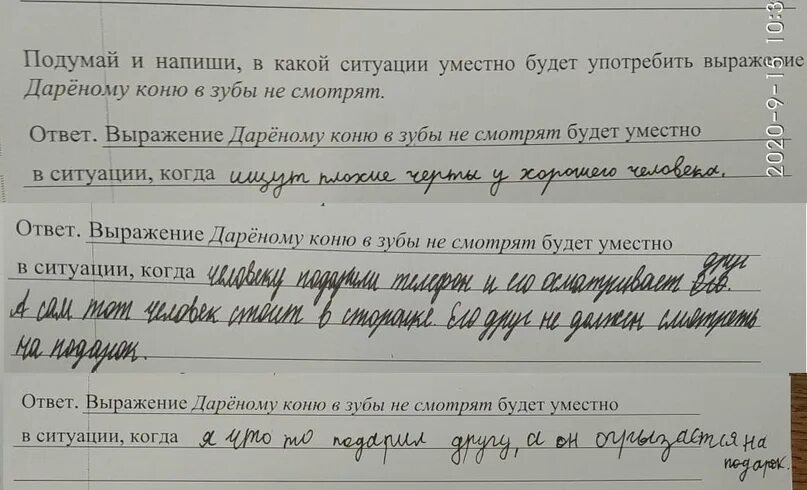 Подумай и напиши, в какой ситуации уместно будет употребить выражение
Дарёному коню в зубы не смотрят.
Ответ. Выражение Дарёному коню в зубы не смотрят будет уместно
в ситуации, когда ищут плохие черты у хорошего человека.
Ответ. Выражение Дарёному коню в зубы не смотрят будет уместно
в ситуации, когда человеку подарили телефон и его осматривает друг.
А сам тот человек стоит в сторонке. Его друг не должен смотреть
на подарок.
Ответ. Выражение Дарёному коню в зубы не смотрят будет уместно
в ситуации, когда я что то подарил другу, а он огрызается на
подарок.
2020-9-15 10:3